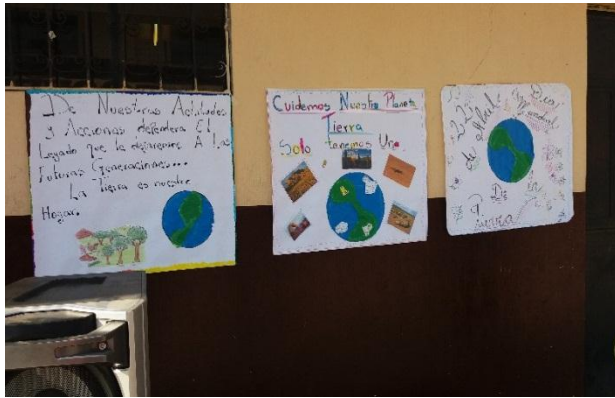 De Nuestras Actitudes
y Acciones dependera El
Legado que le dejaremos A Las
Futuras Generaciones...
La Tierra es nuestro
Hogar.
Cuidemos Nuestro Planeta
Tierra
Solo tenemos Uno
22 de Abril
Dia Mundial
De la
Tierra